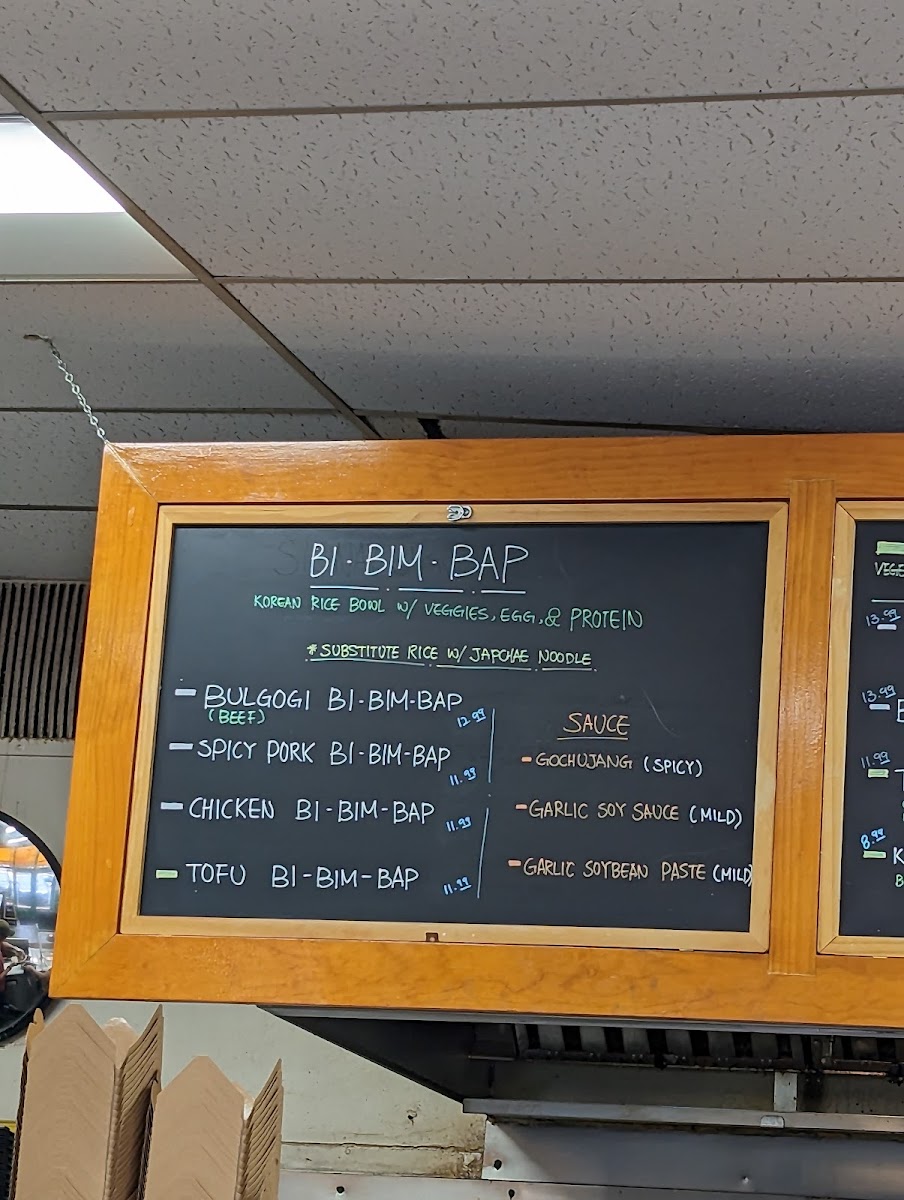 BI·BIM·BAP
KOREAN RICE BOWL W/ VEGGIES, EGG, & PROTEIN
*SUBSTITUTE RICE W/ JAPCHAE NOODLE
BULGOGI BI-BIM-BAP
(BEEF)
12.99
SPICY PORK BI-BIM-BAP
11.99
CHICKEN BI-BIM-BAP
11.99
TOFU BI-BIM-BAP
11.99
SAUCE
-GOCHUJANG (SPICY)
-GARLIC SOY SAUCE (MILD)
-GARLIC SOYBEAN PASTE (MILD)
VEGE
13.99
13.99
11.99
8.99
K
B